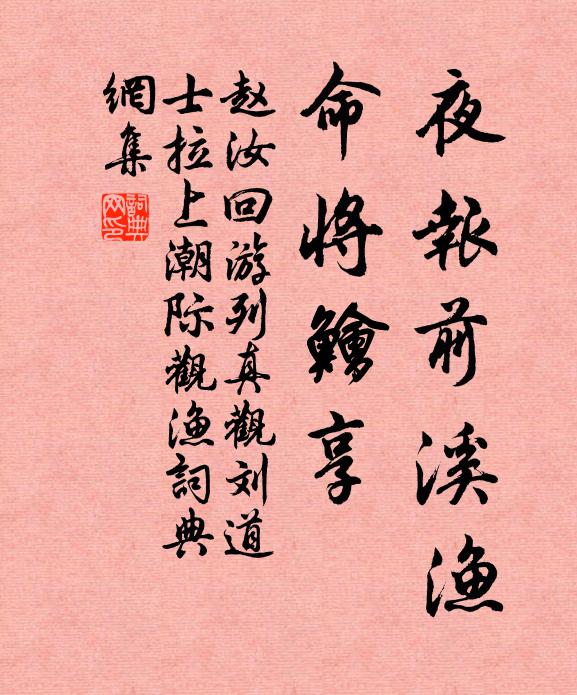 夜報前溪漁
命將鱠享
赵汝回游列真觀刘道
士拉上潮际觀漁詞典
網集
詞典網印